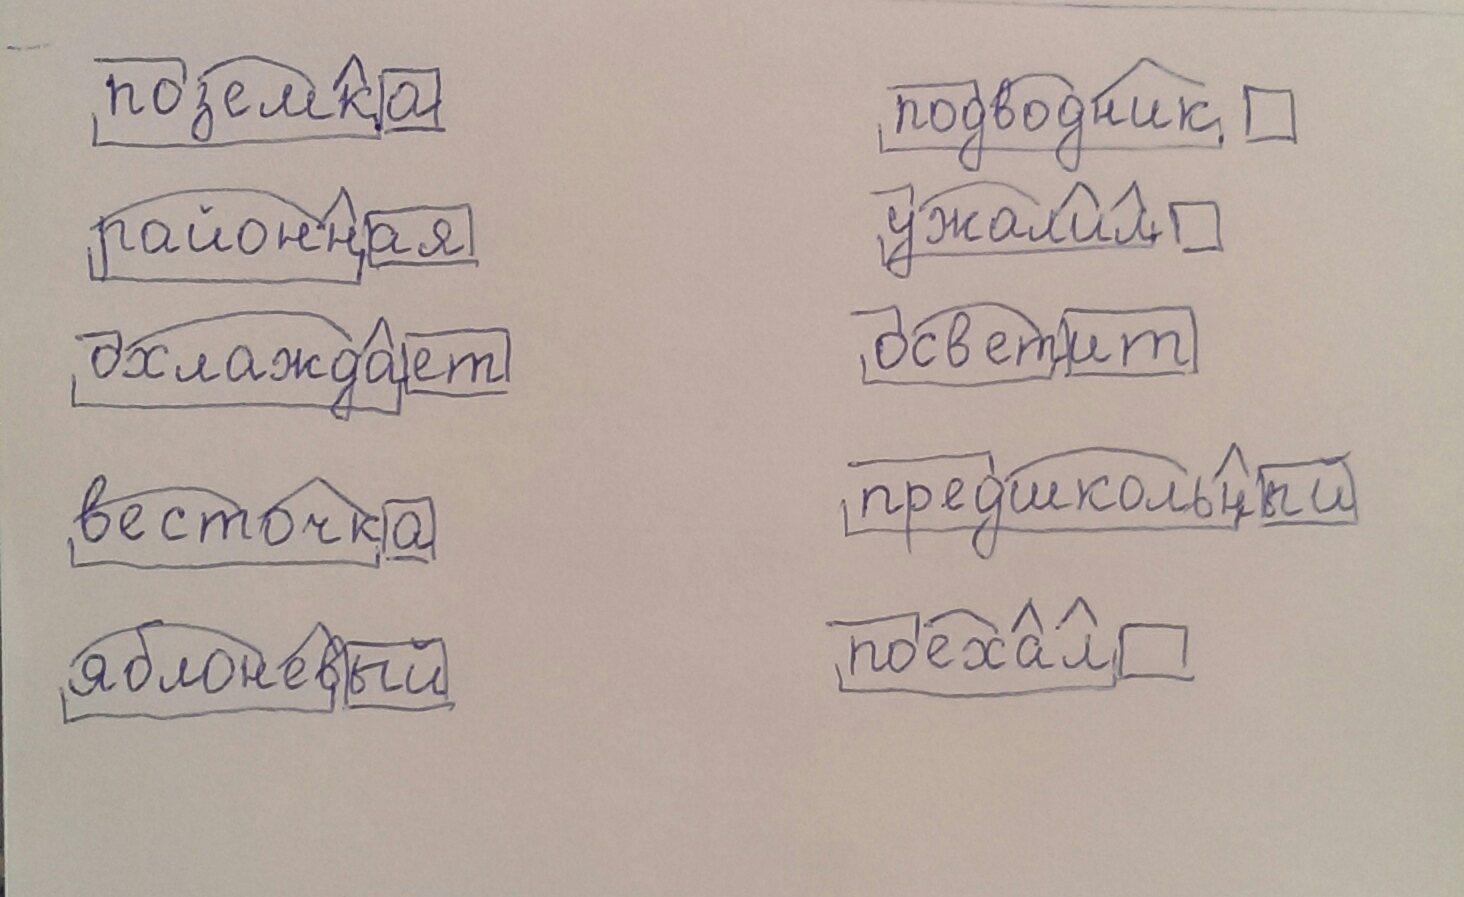 поземка
районная
охлаждает
весточка
яблоневый
подводник
ужалил
осветит
предшкольный
поехал